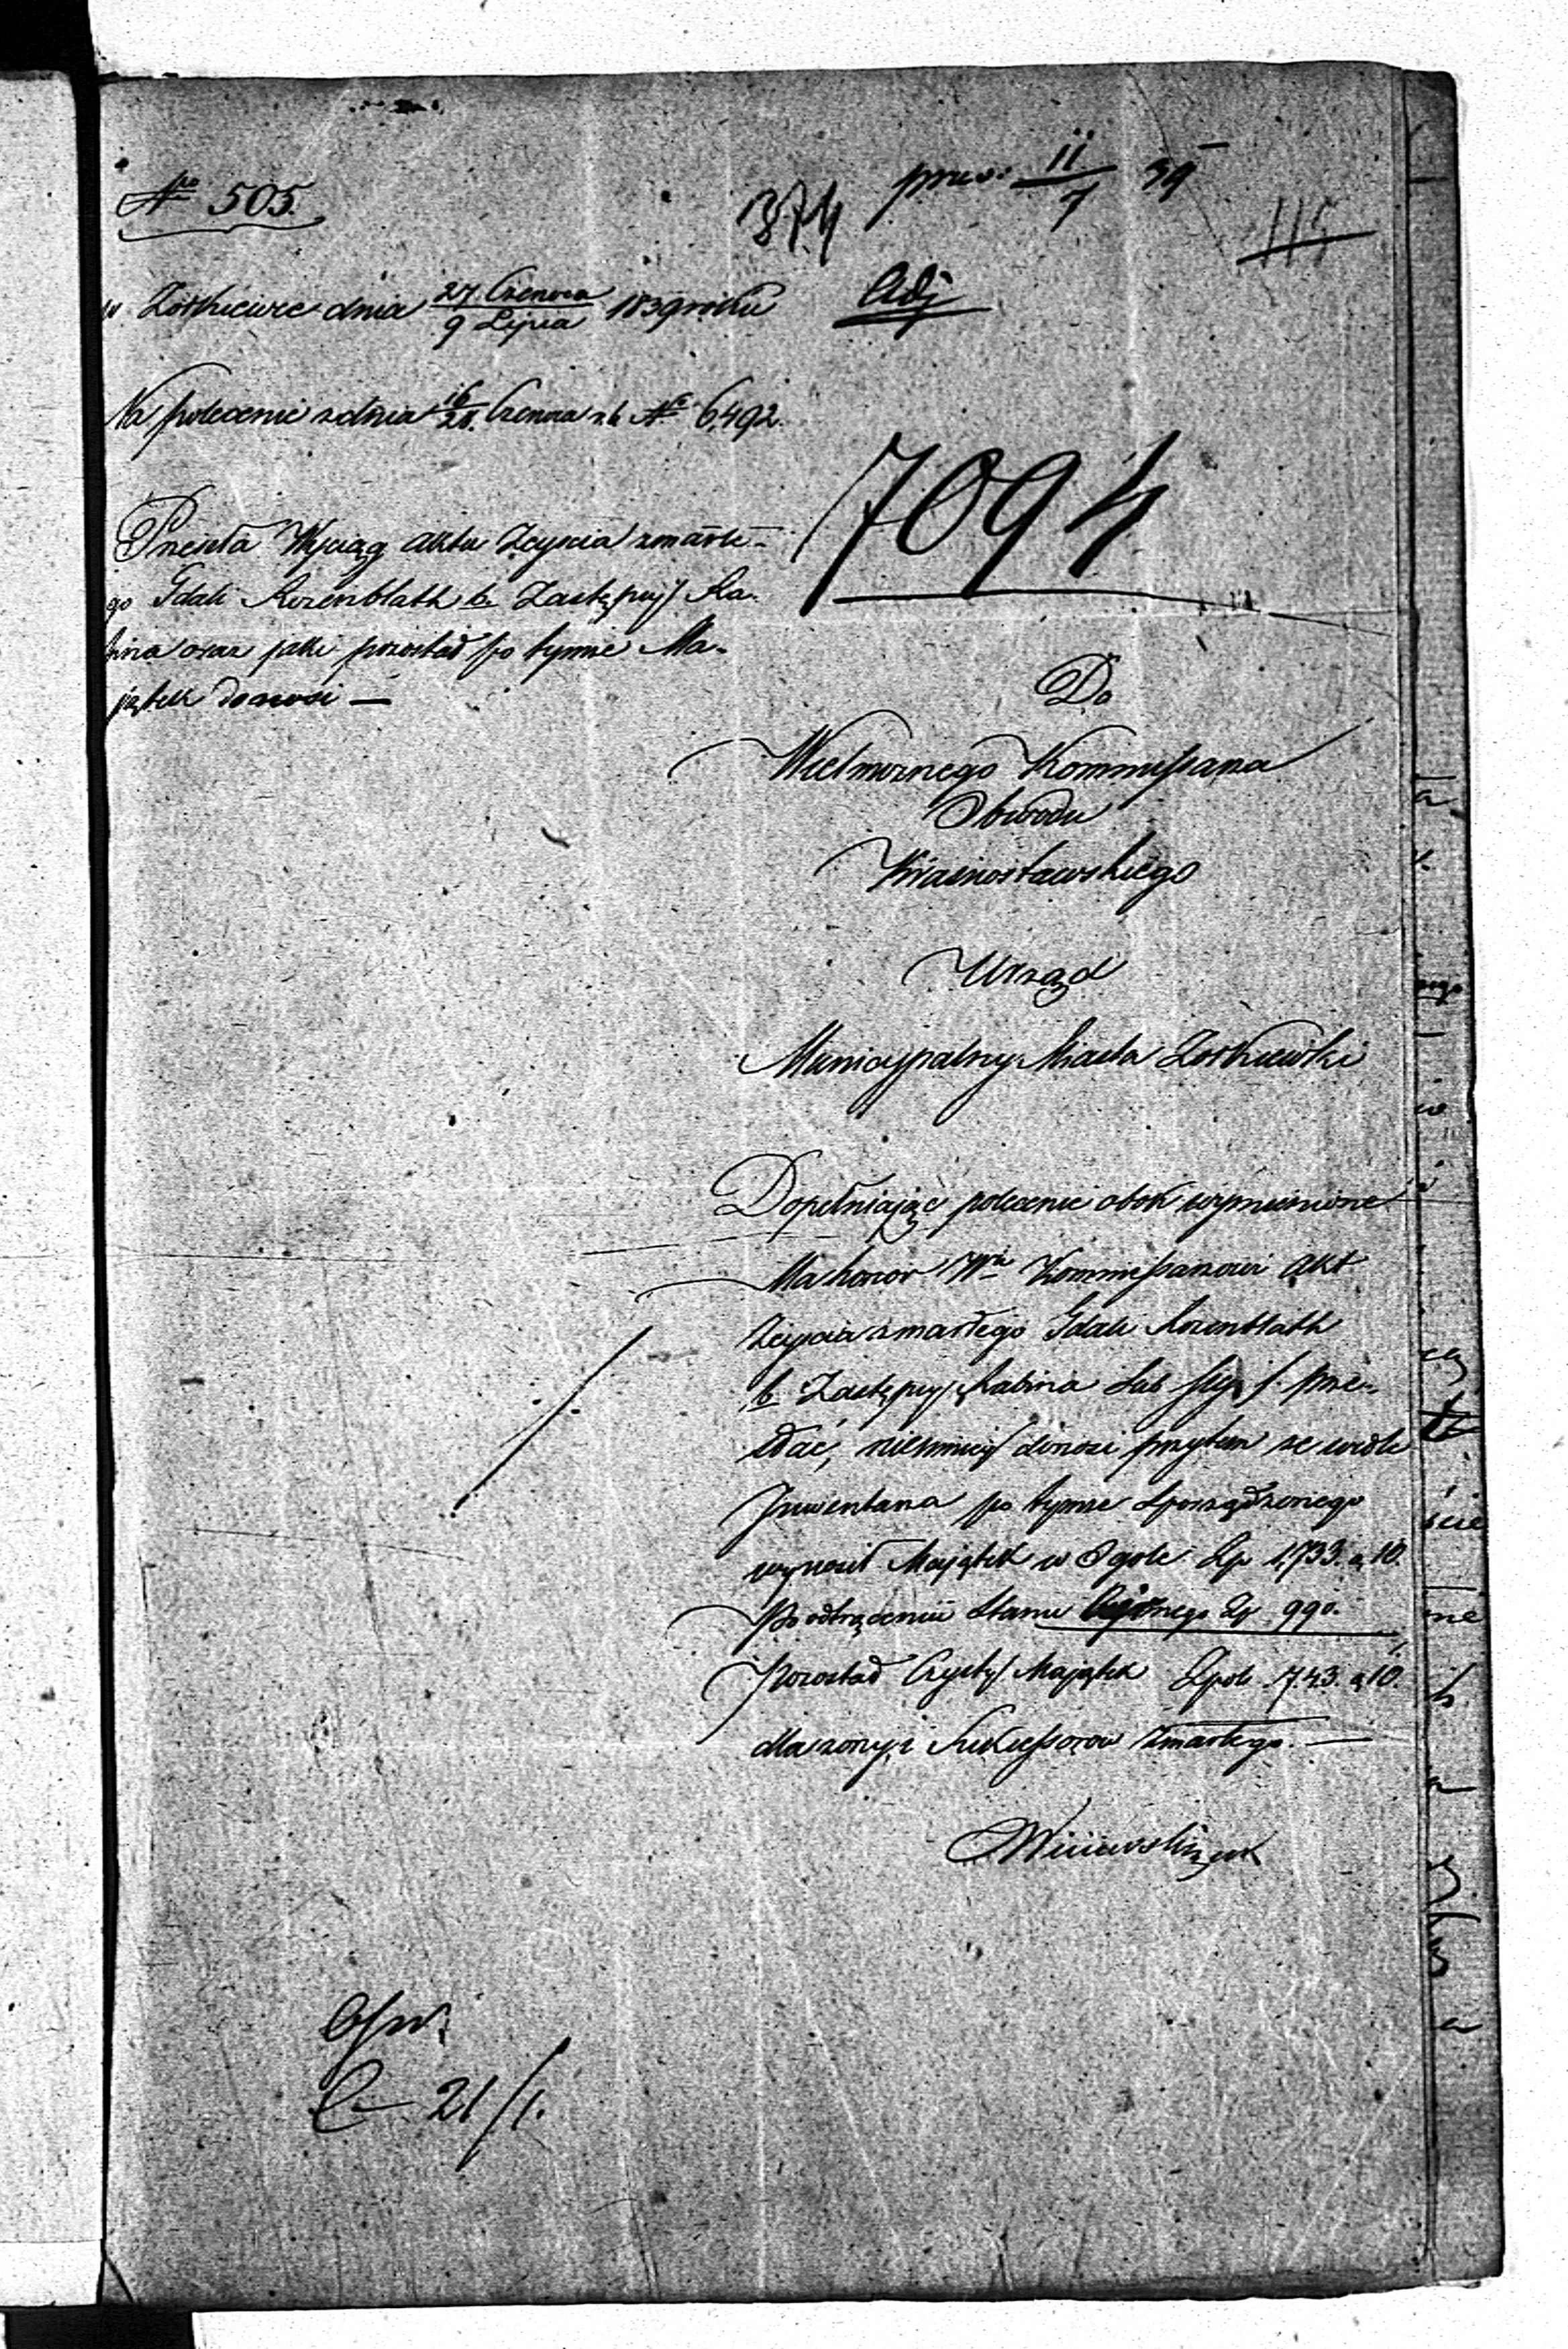 No 505.
374
pres: 11/7 39
115
w Zołkiewce dnia 27 Czerwca / 9 Lipca 1839 roku
Adj
Na polecenie z dnia 16/28. Czerwca r.b. No 6,492.
7094
Przesła Wyciąg aktu Zejscia zmarłe-
go Gdali Rozenblath b. Zastępcy Ra-
bina oraz jaki pozostał po tymże Ma-
jątek donosi —
Do
Wielmożnego Kommissarza
Obwodu
Krasnostawskiego
Urząd
Municypalny Miasta Zołkiewki
Dopełniając polecenie obok wymienione
Ma honor Wu Kommissarzowi Akt
Zejscia zmarłego Gdali Rozenblath
b. Zastępcy Rabina Lub prze-
słać, niemniej donosi przytem ze wedle
Inwentarza po tymże Sporządzonego
wynosił Majątek w Ogole Zp 1,733. g 10.
Po odtrąceniu Stanu Biernego Zp 990.
Pozostał Czysty Majątek Zpol. 743. g 10.
dla zony i Sukcessorow Zmarłego. —
21/1.